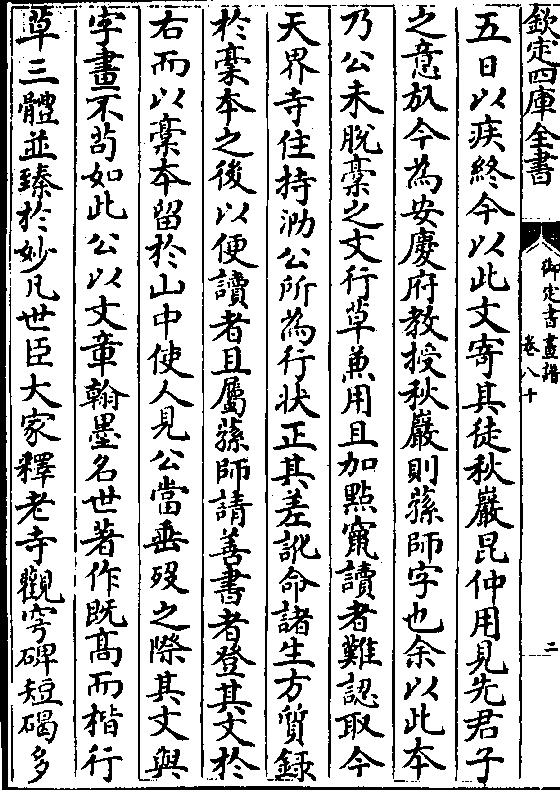 欽定四庫全書
御定書畫譜
卷八十
二
五日以疾終今以此文寄其徒秋巖昆仲用見先君子
之意放今為安慶府教授秋巖則蓀師字也余以此本
乃公未脫槀之文行草兼用且加點竄讀者難認取今
天界寺住持泐公所為行狀正其差訛命諸生方質錄
於槀本之後以便讀者且屬蓀師請善書者登其文於
右而以槀本留於山中使人見公當垂歿之際其文與
字畫不茍如此公以文章翰墨名世著作既高而楷行
草三體並臻於妙凡世臣大家釋老寺觀穹碑短碣多